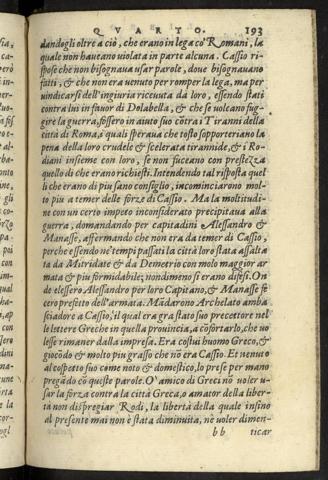 QVARTO. 193
dandogli oltre a ciò, che erano in lega co' Romani, la
quale non haueano violata in parte alcuna. Cassio ri-
spose che non bisognaua usar parole, doue bisognauano
fatti, & che non era uenuto per romper la lega, ma per
uindicarsi dell'ingiuria riceuuta da loro, essendo stati
contra lui in fauor di Dolabella, & che se uoleano fug-
gire la guerra, fossero in aiuto suo cõtra i Tiranni della
città di Roma, quali speraua che tosto sopporteriano la
pena della loro crudele & scelerata tirannide, & i Ro-
diani insieme con loro, se non fuceano con prestezza
quello di che erano richiesti. Intendendo tal risposta quel
li che erano di piu sano consiglio, incominciarono mol-
to piu a temer delle forze di Cassio. Ma la moltitudi-
ne con un certo impeto inconsiderato precipitaua alla
guerra, domandando per capitadini Alessandro &
Manasse, affermando che non era da temer di Cassio,
perche essendo ne'tempi passati la città loro stata assalta
ta da Mitridate & da Demetrio con molo maggior ar
mata & piu formidabile; nondimeno si erano difesi. On
de elessero Alessandro per loro Capitano, & Manasse fe
cero prefetto dell'armata. Mãdarono Archelato amba
sciadore a Cassio, il qual era gia stato suo precettore nel
le lettere Greche in quella prouincia, a cõfortarlo, che uo
lesse rimaner dalla impresa. Era costui huomo Greco, &
giocõdo & molto piu grasso che nõ era Cassio. Et uenuto
al cospetto suo come noto & domestico, lo prese per mano
pregãdo cõ queste parole. O' amico di Greci nõ uoler u-
sar la forza contra la città Greca, o amator della liber-
tà non dispregiar Rodi, la libertà della quale insino
al presente mai non è stata diminuita, nè uoler dimen-
bb ticar